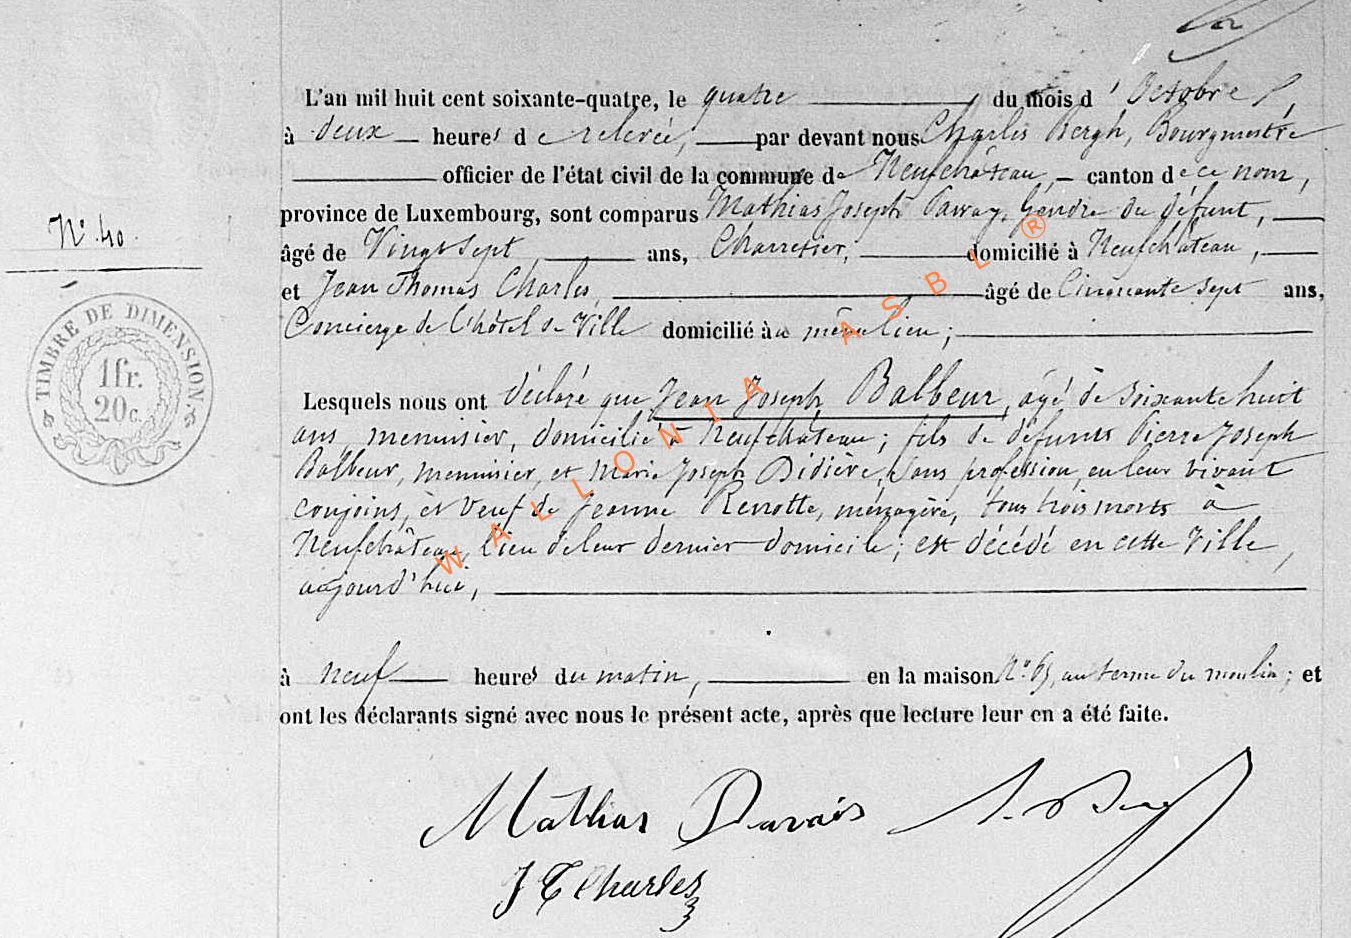 L'an mil huit cent soixante-quatre, le quatre du mois d'Octobre,
à deux heures de relevée, par devant nous Charles Bergh, Bourgmestre
officier de l'état civil de la commune de Neufchâteau, canton de ce nom,
province de Luxembourg, sont comparus Mathias Joseph Gendre du défunt,
N° 40.
âgé de Vingt sept ans, Charretier, domicilié à Neufchâteau,
et Jean Thomas Charles, âgé de Cinquante sept ans,
Concierge de l'hôtel de Ville domicilié au même lieu;
TIMBRE DE DIMENSION
1fr.
20c.
Lesquels nous ont déclaré que Jean Joseph Balbeur, âgé de Soixante huit
ans, menuisier, domicilié à Neufchâteau; fils de défunts Pierre Joseph
Balbeur, menuisier, et Marie Joseph Didière, Sans profession, en leur vivant
conjoins, et Veuf de Jeanne Renotte, ménagère, tous trois morts à
Neufchâteau, lieu de leur dernier domicile; est décédé en cette Ville,
aujourd'hui,
à neuf heures du matin, en la maison N° au terme du moulin; et
ont les déclarants signé avec nous le présent acte, après que lecture leur en a été faite.
Mathias
J T Charles
WALLONIA ASBL ®